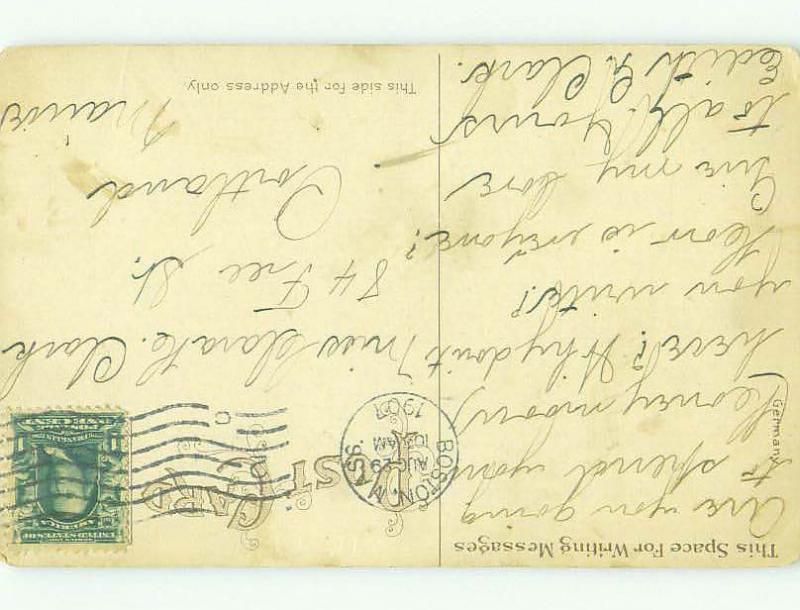 This Space For Writing Messages
Are you going
to spend your
honeymoon
here? Why don't
you write?
How is everyone?
Give my love
to all. Yours
Edith G. Clark.
Germany
POST CARD
BOSTON, MASS.
AUG 29
10 AM
1907
UNITED STATES OF
AMERICA
ONE CENT
1
1
Miss Clara H. Clark
84 Free St.
Portland
Maine
This side for the Address only.